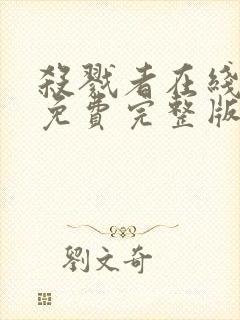 殺戮者在綫
免費完整版
劉文奇